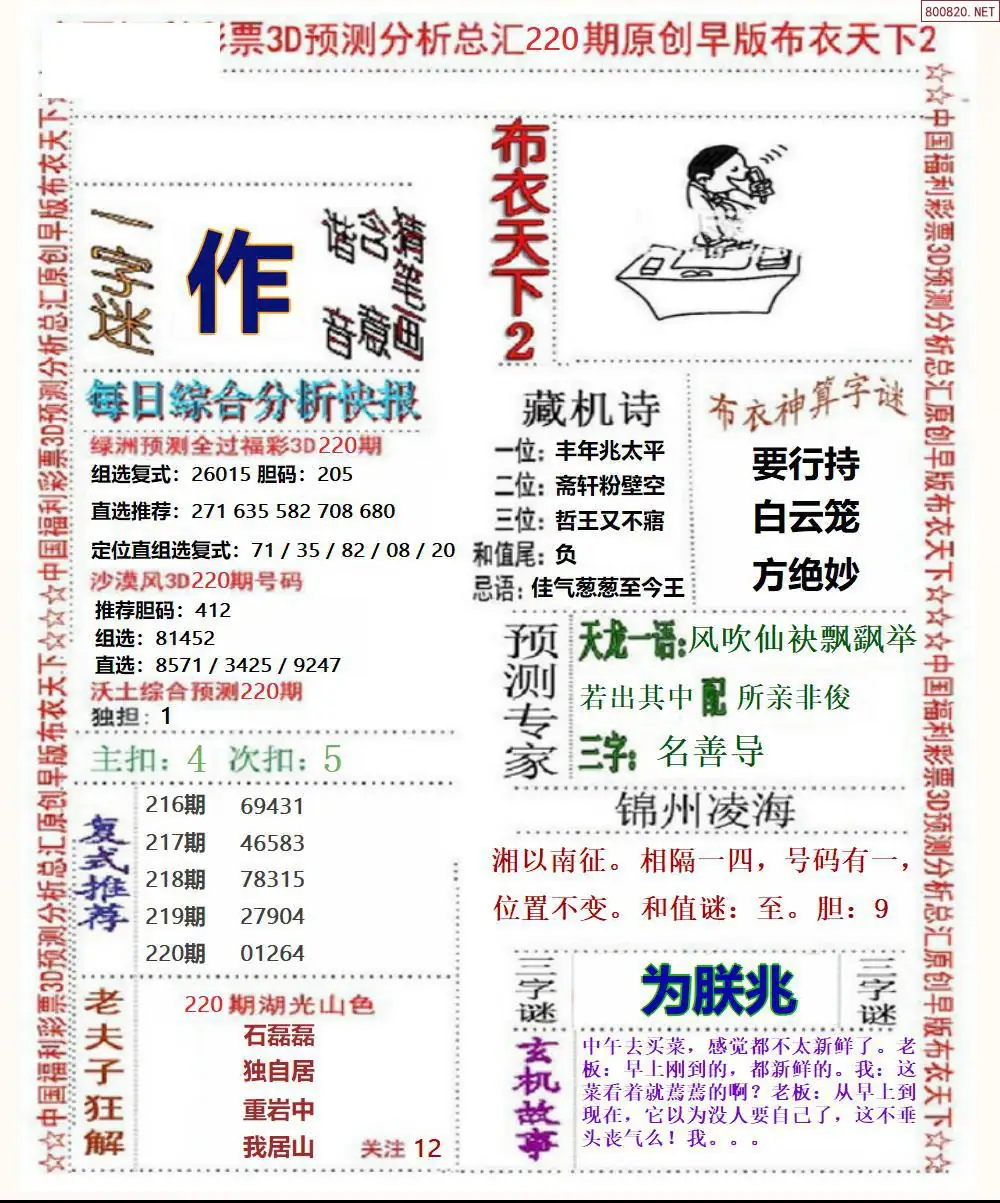 800820.NET
彩票3D预测分析总汇220期原创早版布衣天下2
☆☆中国福利彩票3D预测分析总汇原创早版布衣天下☆☆☆中国福利彩票3D预测分析总汇原创早版布衣天下☆
一字迷
作
猜笔画
含意
谐音
布衣天下2
每日综合分析快报
绿洲预测全过福彩3D220期
组选复式：26015 胆码：205
直选推荐：271 635 582 708 680
定位直组选复式：71 / 35 / 82 / 08 / 20
沙漠风3D220期号码
推荐胆码：412
组选：81452
直选：8571 / 3425 / 9247
沃土综合预测220期
独担：1
主扣：4 次扣：5
复式推荐
216期 69431
217期 46583
218期 78315
219期 27904
220期 01264
老夫子狂解
220期湖光山色
石磊磊
独自居
重岩中
我居山 关注 12
藏机诗
一位：丰年兆太平
二位：斋轩粉壁空
三位：哲王又不寤
和值尾：负
忌语：佳气葱葱至今王
布衣神算字谜
要行持
白云笼
方绝妙
预测专家
天龙一语：风吹仙袂飘飖举
若出其中配所亲非俊
三字：名善导
锦州凌海
湘以南征。相隔一四，号码有一，
位置不变。和值谜：至。胆：9
三字谜
为朕兆
三字谜
玄机故事
中午去买菜，感觉都不太新鲜了。老
板：早上刚到的，都新鲜的。我：这
菜看着就蔫蔫的啊？老板：从早上到
现在，它以为没人要自己了，这不垂
头丧气么！我。。。
☆☆中国福利彩票3D预测分析总汇原创早版布衣天下☆☆☆中国福利彩票3D预测分析总汇原创早版布衣天下☆☆